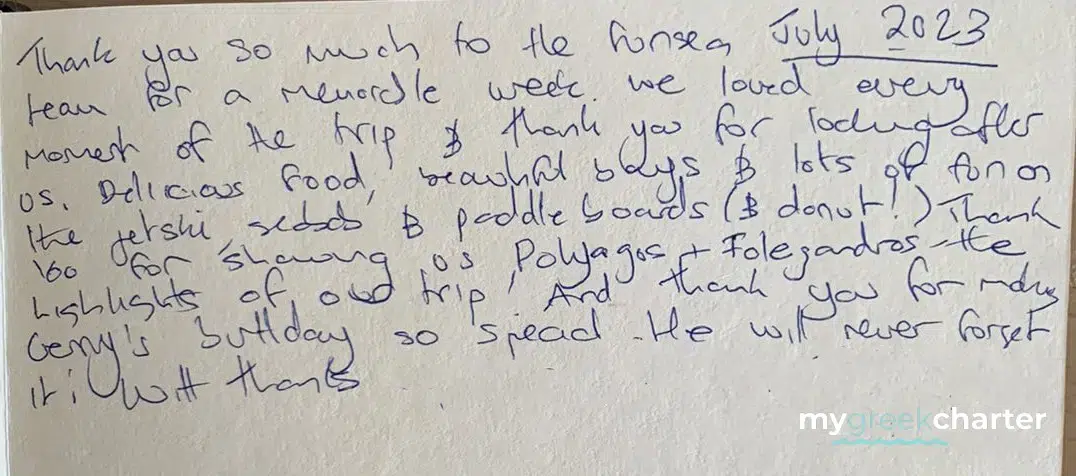 Thank you so much to the Funsea July 2023
team for a memorable week. We loved every
moment of the trip & thank you for looking after
us. Delicious food, beautiful bays & lots of fun on
the jetski, seabob & paddle boards (& donut!) Thank
you for showing us Polyagos + Folegandros - the
highlights of our trip! And thank you for making
Gerry's birthday so special. He will never forget
it! With thanks
mygreekcharter